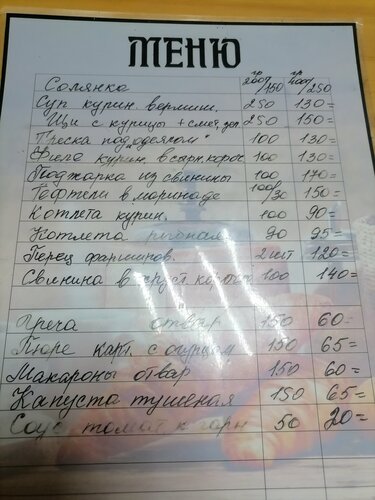 МЕНЮ
Солянка 200г/150 400г/250
Суп курин. вермиш. 250 130=
Щи с курицы + смет, зел. 250 150=
Треска под „одеялом" 100 130=
Филе курин. в сырн. корос 100 130=
Поджарка из свинины 100 170=
Тефтели в маринаде 100/30 150=
Котлета курин. 100 90=
Котлета рыбная 90 95=
Перец фарширов. 2 шт 120=
Свинина в хруст. корочке 100 140=
Греча отвар 150 60=
Пюре карт. с огурцом 150 65=
Макароны отвар 150 60=
Капуста тушеная 150 65=
Соус томат к гарн 50 20=